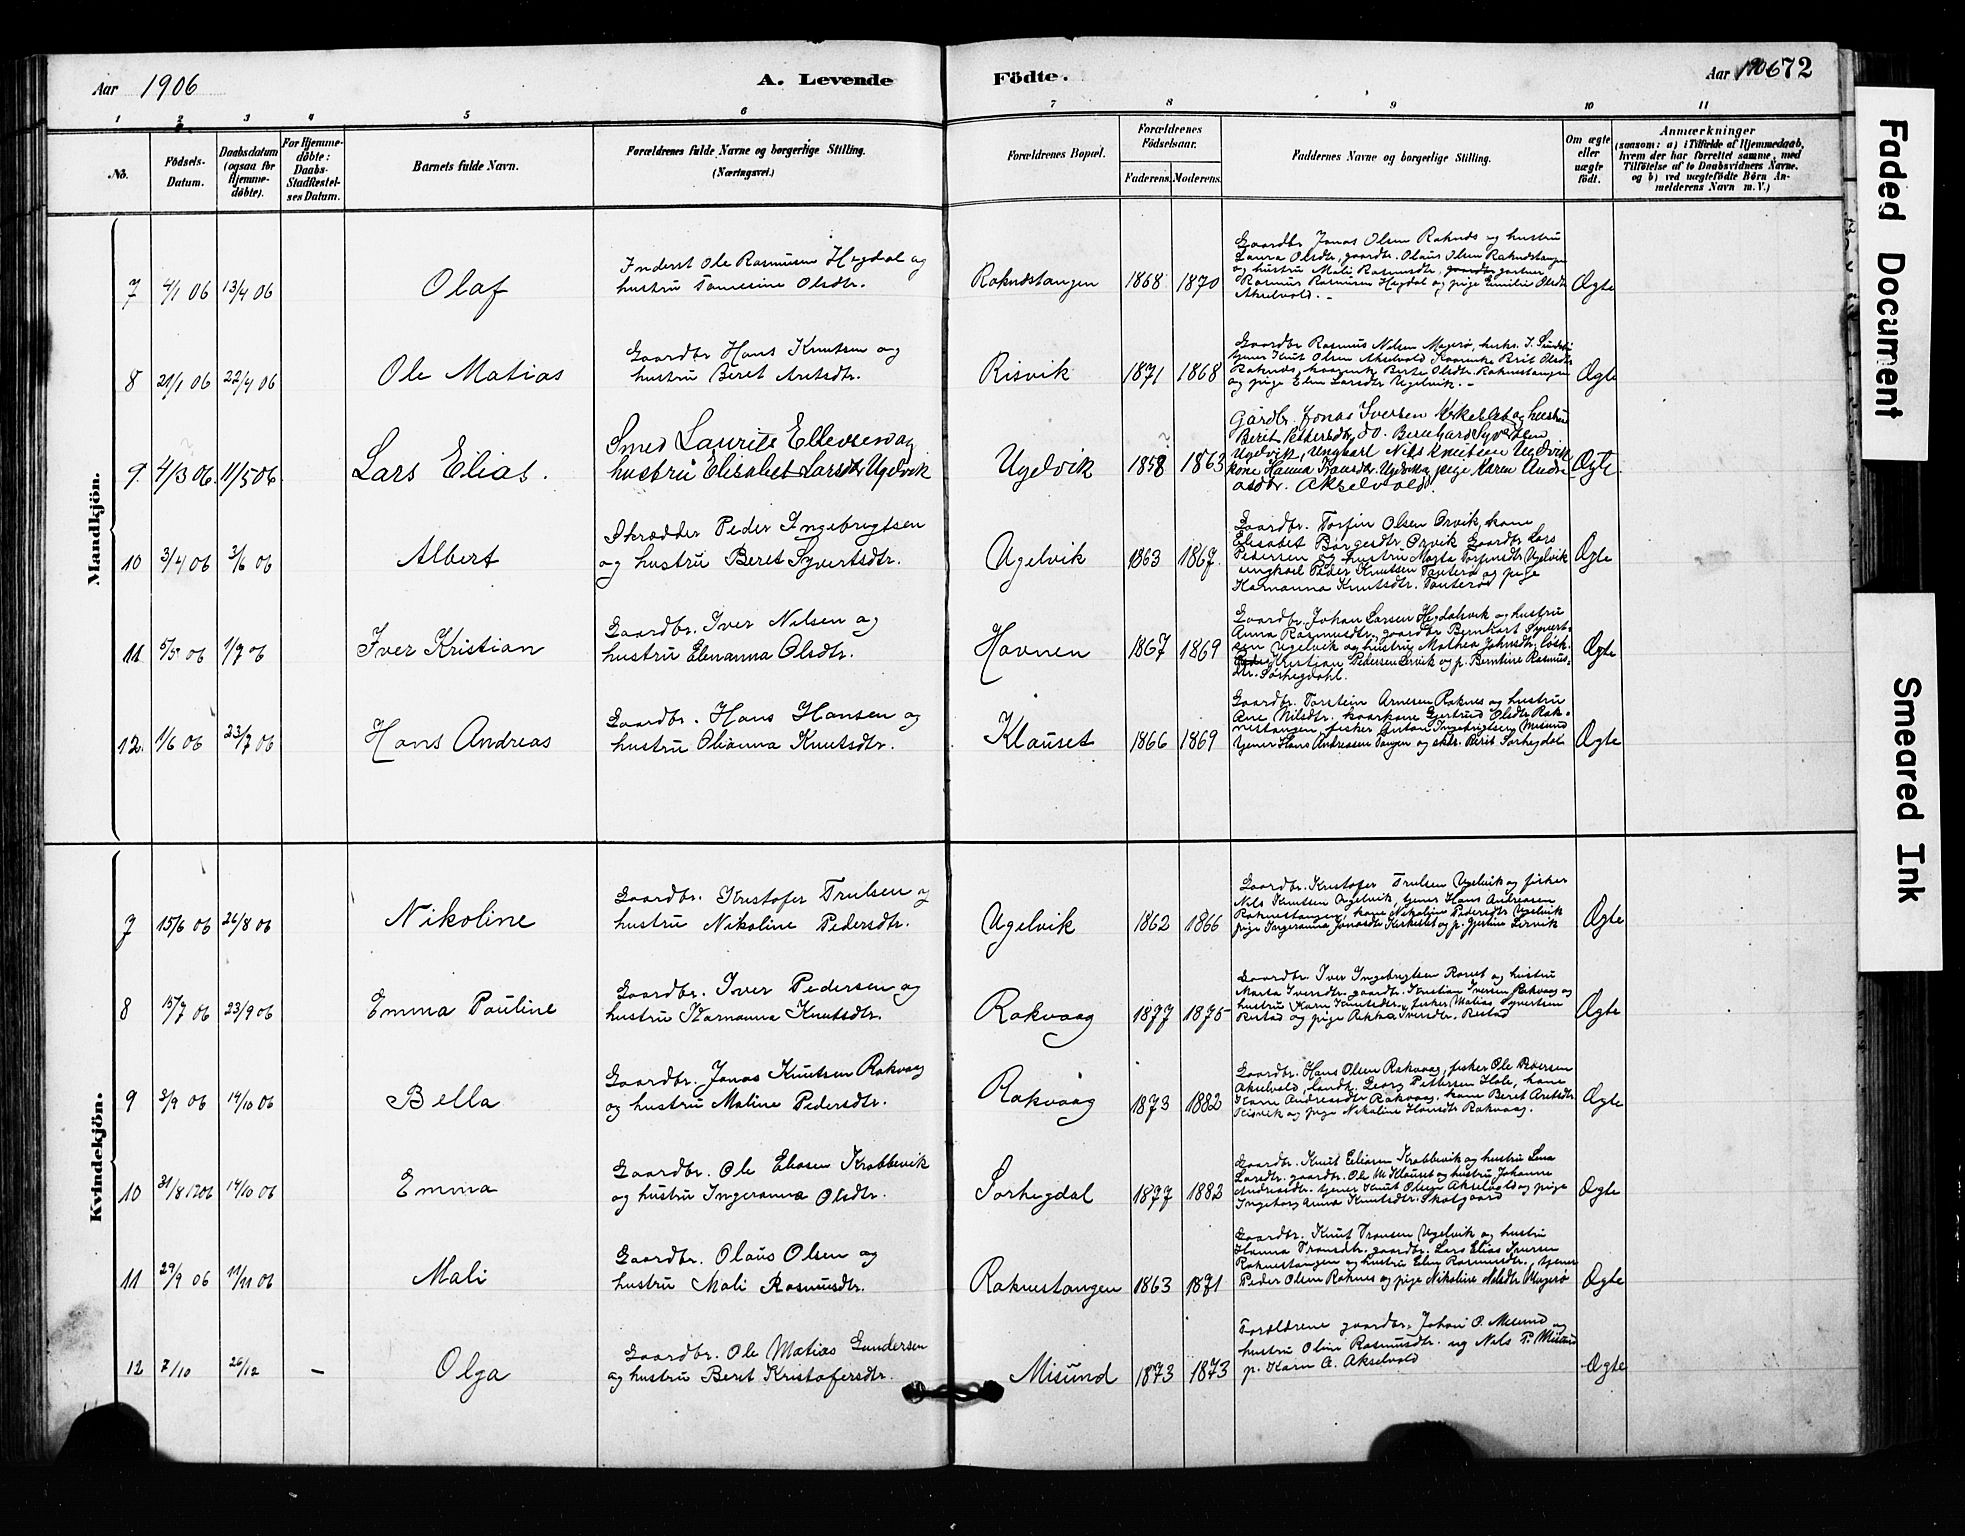 Aar 1906
A. Levende
Födte.
Aar 1906
72
1 2 3 4 5 6 7 8 9 10 11
No.
Födsels-
Datum.
Daabsdatum
(ogsaa for
Hjemme-
döbte).
For Hjemme-
döbte:
Daabs-
Stadfæstel-
ses Datum.
Barnets fulde Navn.
Forældrenes fulde Navne og borgerlige Stilling.
(Næringsvei.)
Forældrenes Bopæl.
Forældrenes
Födselsaar.
Faderens. Moderens.
Faddernes Navne og borgerlige Stilling.
Om ægte
eller
uægte
födt.
Anmærkninger
(saasom: a) i Tilfælde af Hjemmedaab,
hvem der har forrettet samme, med
Tilföielse af to Daabsvidners Navne.
og b) ved uægtefödte Börn An-
melderens Navn m. V.)
Mandkjön.
7 4/1 06 13/4 06 Olaf
Inderst Ole Rasmusen Hegdal og
hustru Tomesine Olsdtr.
Raknestangen 1868 1870
Gaardbr Jonas Olsen Raknes og hustru
Laura Olsdtr, gaardbr. Olaus Olsen Raknestangen
og hustru Mali Rasmusdtr, gaardbr gartner
Rasmus Rasmusen Hegdal og pige Emilie Olsdtr
Akselvold. -
Ægte
8 21/1 06 22/4 06 Ole Matias
Gaardbr Hans Knutsen og
hustru Beret Aretsdtr.
Risvik 1871 1868
Gaardbr Rasmus Nilsen Meyerø,
tjener Knut Olsen Akselvold Kaarenke Brit Olsdtr
Raknes, kaarenke Berte Olsdtr. Raknestangen
og pige Elen Larsdtr Ugelvik. -
Ægte
9. 4/3 06. 11/5 06 Lars Elias.
Smed Laurits Ellevsen og
hustru Elisabet Larsdtr Ugelvik
Ugelvik 1858 1863
Gårdbr. Jonas Iversen Kirkeslet og hustru
Berit Pettersdtr, do. Bernhard Syvertsen
Ugelvik, Ungkarl Nils Knutsen Ugelvik
kone Hanna Transdtr. Ugelvik, pige Karen Andre
asdtr. Akselvold.
Ægte
10 3/4 06 3/6 06 Albert
Skrædder Peder Ingebrigtsen
og hustru Beret Syvertsdtr.
Ugelvik 1863 1867.
Gaardbr. Torfin Olsen Orvik, kone
Elisabet Børgesdtr Orvik Gaardbr Lars
Pedersen og hustru Marta Torfinsdtr Ugelvik
ungkarl Peder Knutsen Tauterø og pige
Hamanna Knutsdtr. Tauterø
Ægte
11 6/5 06 1/7 06 Iver Kristian
Gaardbr. Iver Nilsen og
hustru Elenanna Olsdtr.
Havnen 1867 1869
Gaardbr. Johan Larsen Hegdalsvik og hustru
Anna Rasmusdtr, gaardbr Bernhart Syvert-
sen Ugelvik og hustru Mathea Johnsdtr,
Kristian Pedersen Lervik og p. Berntine Rasmus-
dtr. Sørhegdahl.
Ægte
12. 1/6 06 23/7 06 Hans Andreas
Gaardbr. Hans Hansen og
hustru Olianna Knutsdtr.
Klauset 1866 1869
Gaardbr. Torstein Arnesen Raknes og hustru
Ane Nilsdtr. kaarkone Gjertrud Olsdtr Rak-
nestangen, fisker Anton Ingebrigtsen Misund
tjener Hans Andreasen Tangen og Berit Sørhegdal
Ægte
Kvindekjön.
7 15/6 06 26/8 06 Nikoline
Gaardbr. Kristofer Trulsen og
hustru Nikoline Pedersdtr.
Ugelvik 1862 1866
Gaardbr. Kristofer Trulsen Ugelvik og fisker
Nils Knutsen Ugelvik, tjener Hans Andreasen
Raknestangen, kone Nikoline Pedersdtr Ugelvik
pige Ingeranna Jonasdtr Kirkeslet og p. Gjertine Lervik
Ægte
8 15/7 06 23/9 06 Emma Pauline
Gaardbr. Iver Pedersen og
hustru Hamanna Knutsdtr.
Rakvaag 1877 1875
Gaardbr. Iver Ingebrigtsen Rørset og hustru
Marta Iversdtr. gaardbr. Kristian Iversen Rakvaag og
hustru Karn Knutsdtr., fisker Matias Syvertsen
Restad og pige Rekka Iversdtr. Restad
Ægte
9 3/9 06 14/10 06 Bella
Gaardbr. Jonas Knutsen Rakvaag
og hustru Maline Pedersdtr.
Rakvaag 1873 1882
Gaardbr. Hans Olsen Rakvaag, fisker Ole Iversen
Akselvold, landh. Georg Pettersen Hole, kone
Karn Andreasdtr Rakvaag, kone Beret Aretsdtr
Risvik og pige Nikoline Hansdtr Rakvaag.
Ægte
10 31/8 1906 14/10 06 Emma
Gaardbr. Ole Eliasen Krabbevik
og hustru Ingeranna Olsdtr.
Sørhegdal 1877 1882
Gaardbr. Knut Eliasen Krabbevik og hustru Lina
Larsdtr. gaardbr. Ole M Klauset og hustru Johanne
Andreasdtr. tjener Knut Olsen Akselvold og pige
Ingeborg Anna Knutsdtr. Skotgaard
Ægte
11 29/9 06 11/11 06 Mali
Gaardbr. Olaus Olsen og
hustru Mali Rasmusdtr.
Raknestangen 1863 1871
Gaardbr. Knut Transen Ugelvik og hustru
Hanna Transdtr. gaardbr. Lars Elias Iversen
Raknestangen og hustru Elen Rasmusdtr., tjener
Peder Olsen Raknes og pige Nikoline Nilsdtr Meyerø
Ægte
12 7/10 26/12 - Olga
Gaardbr. Ole Matias Gundersen
og hustru Beret Kristofersdtr.
Misund 1873 1873
Forældrene gaardbr. Johan O. Misund og
hustru Oline Rasmusdtr. og Nils P. Misund
p. Karn A. Akselvold
Ægte
Faded Document
Smeared Ink